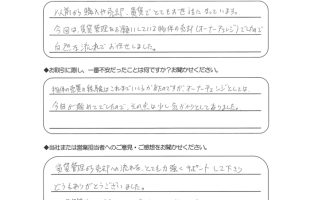 以前から購入や売却、賃貸でとてもお世話になっています。
今回は、賃貸管理をお願いしている物件の売却(オーナーチェンジ)でしたので
自然な流れでお任せしました。
◆お取引に際し、一番不安だったことは何ですか?お聞かせください。
物件の売買の経験はこれまでいくらかあるのですが、オーナーチェンジとしては
今回が初めてでしたので、その点は少し気がかりとしてありました。
◆当社または営業担当者へのご意見・ご感想をお聞かせください。
賃貸管理から売却への流れを、とても力強くサポートして下さり
どうもありがとうございました。